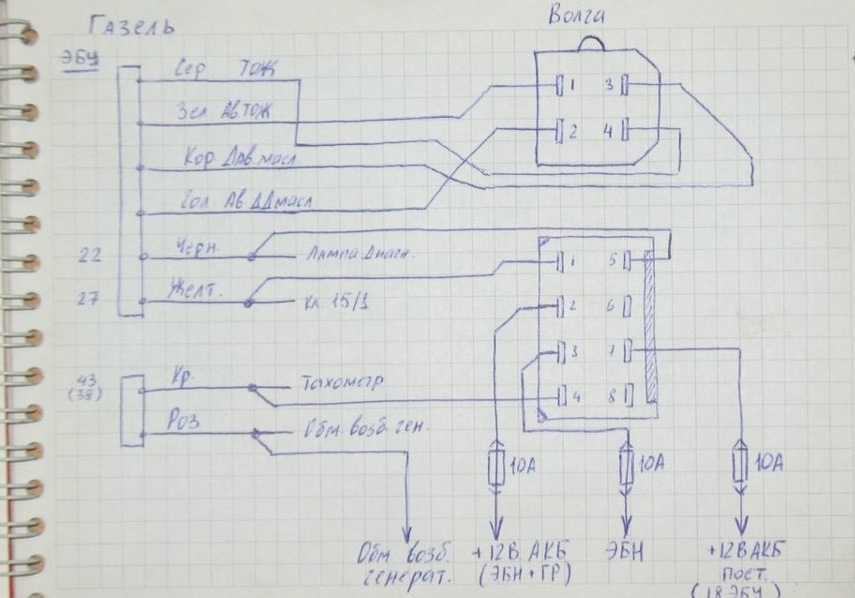 Газель
Волга
ЭБУ
Сер ТОЖ
Зел АвТОЖ
Кор Дав.масл
Гол Ав ДДмасл
22 Черн. Лампа Диагн.
27 Желт. Кл 15/1
43 Кр. Тахометр
(38)
Роз Обм. возб. ген.
1 3
2 4
1 5
2 6
3 7
4 8
10А 10А 10А
Обм возб. +12В АКБ ЭБН +12В АКБ
генерат. (ЭБН+ГР) пост.
(18 ЭБУ)